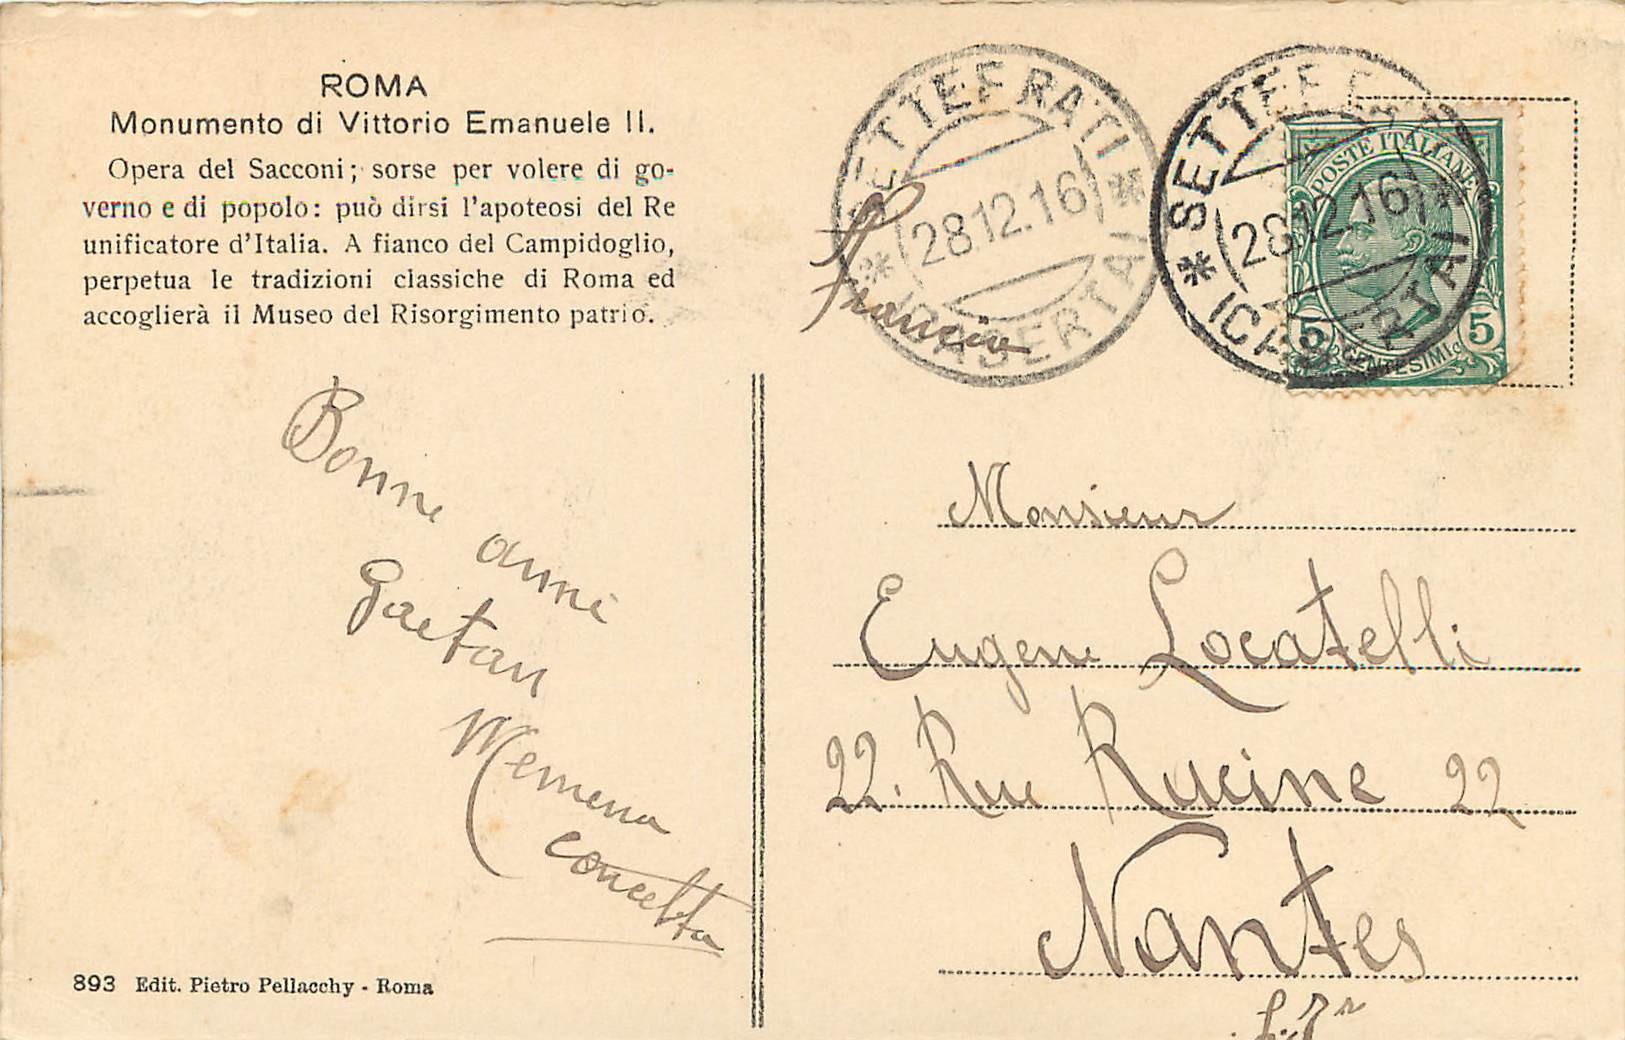 ROMA
Monumento di Vittorio Emanuele II.
Opera del Sacconi; sorse per volere di go-
verno e di popolo: può dirsi l'apoteosi del Re
unificatore d'Italia. A fianco del Campidoglio,
perpetua le tradizioni classiche di Roma ed
accoglierà il Museo del Risorgimento patrio.
Bonne
anné
Gaetan
Memena
concetta
893 Edit. Pietro Pellacchy - Roma
SETTEFRATI
28.12.16
* (CASERTA) *
Francia
SETTEFRATI
28.12.16
* (CASERTA) *
POSTE ITALIANE
5 CENTESIMI 5
Monsieur
Eugene Locatelli
22. Rue Racine 22
Nantes